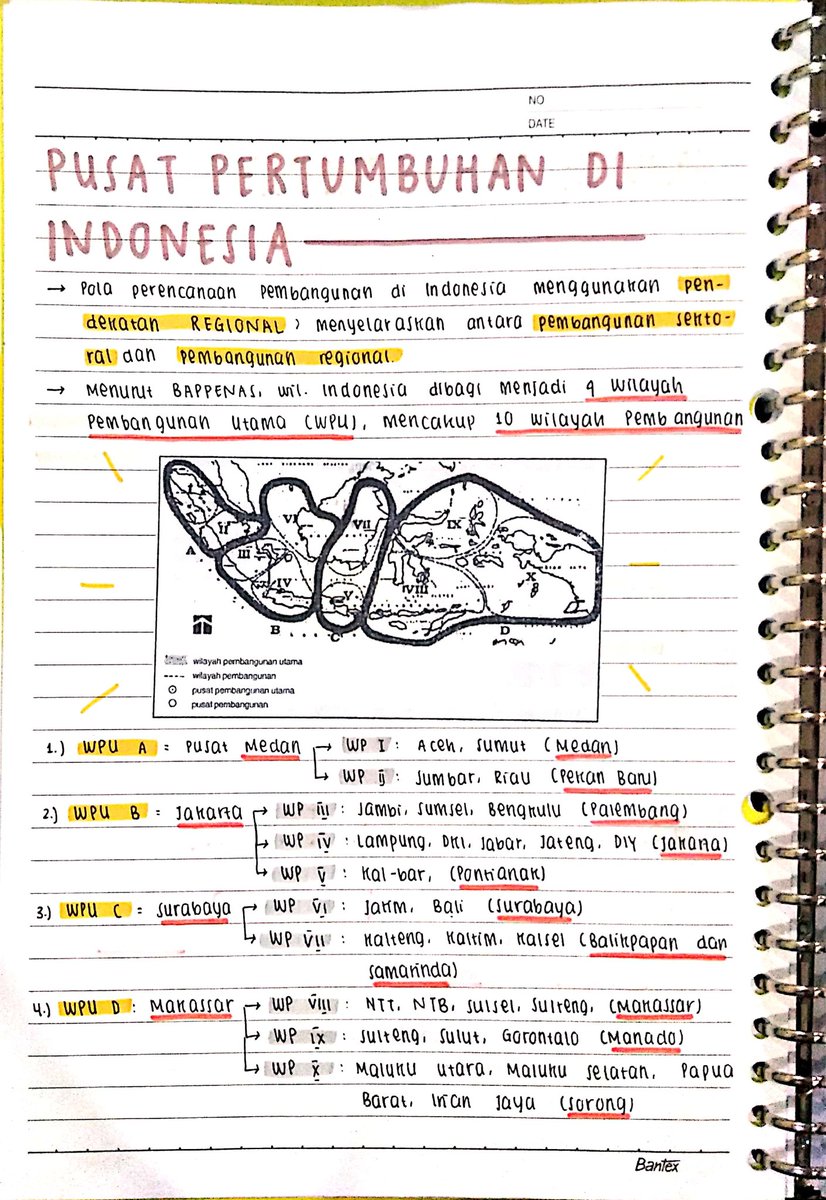 NO
DATE
PUSAT PERTUMBUHAN DI
INDONESIA
→ Pola perencanaan pembangunan di Indonesia menggunakan pen-
dekatan REGIONAL > menyelaraskan antara pembangunan sekto-
ral dan pembangunan regional.
→ Menurut BAPPENAS, wil. Indonesia dibagi menjadi 4 Wilayah
Pembangunan Utama (WPU), mencakup 10 Wilayah Pembangunan
I
II
III
IV
V
VI
VII
VIII
IX
X
A
B
C
D
wilayah pembangunan utama
wilayah pembangunan
pusat pembangunan utama
pusat pembangunan
1.) WPU A = Pusat Medan → WP I : Aceh, Sumut (Medan)
→ WP II : Sumbar, Riau (Pekan Baru)
2.) WPU B = Jakarta → WP III : Jambi, Sumsel, Bengkulu (Palembang)
→ WP IV : Lampung, DKI, Jabar, Jateng, DIY (Jakarta)
→ WP V : Kal-bar, (Pontianak)
3.) WPU C = Surabaya → WP VI : Jatim, Bali (Surabaya)
→ WP VII : Kalteng, Kaltim, Kalsel (Balikpapan dan
Samarinda)
4.) WPU D : Makassar → WP VIII : NTT, NTB, Sulsel, Sulteng, (Makassar)
→ WP IX : Sulteng, Sulut, Gorontalo (Manado)
→ WP X : Maluku Utara, Maluku Selatan, Papua
Barat, Irian Jaya (Sorong)
Bantex